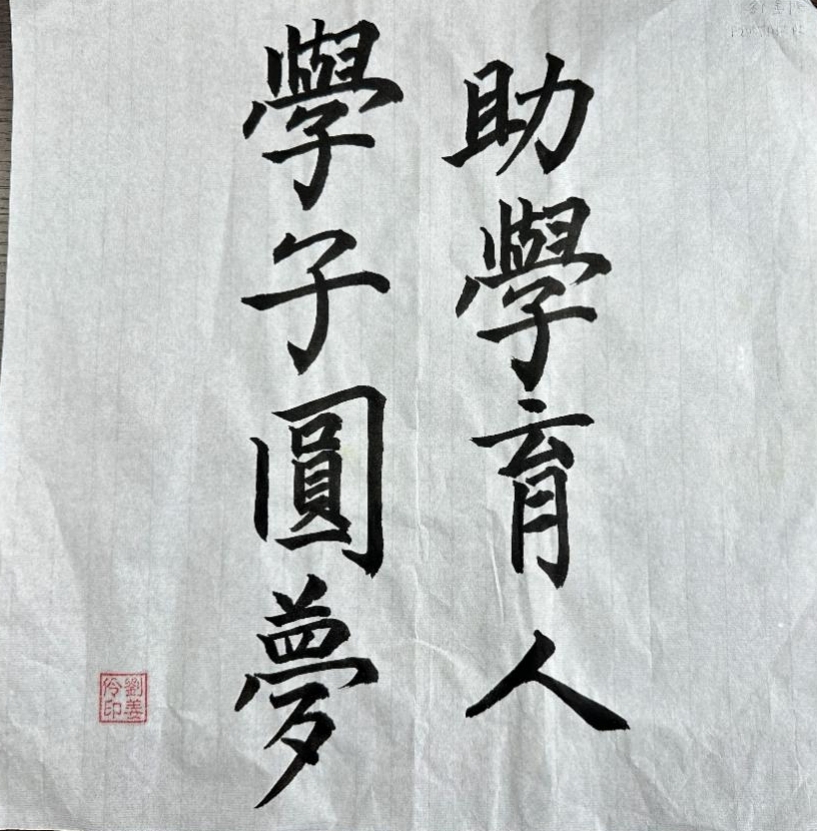 助學育人
學子圓夢
劉善
伶印